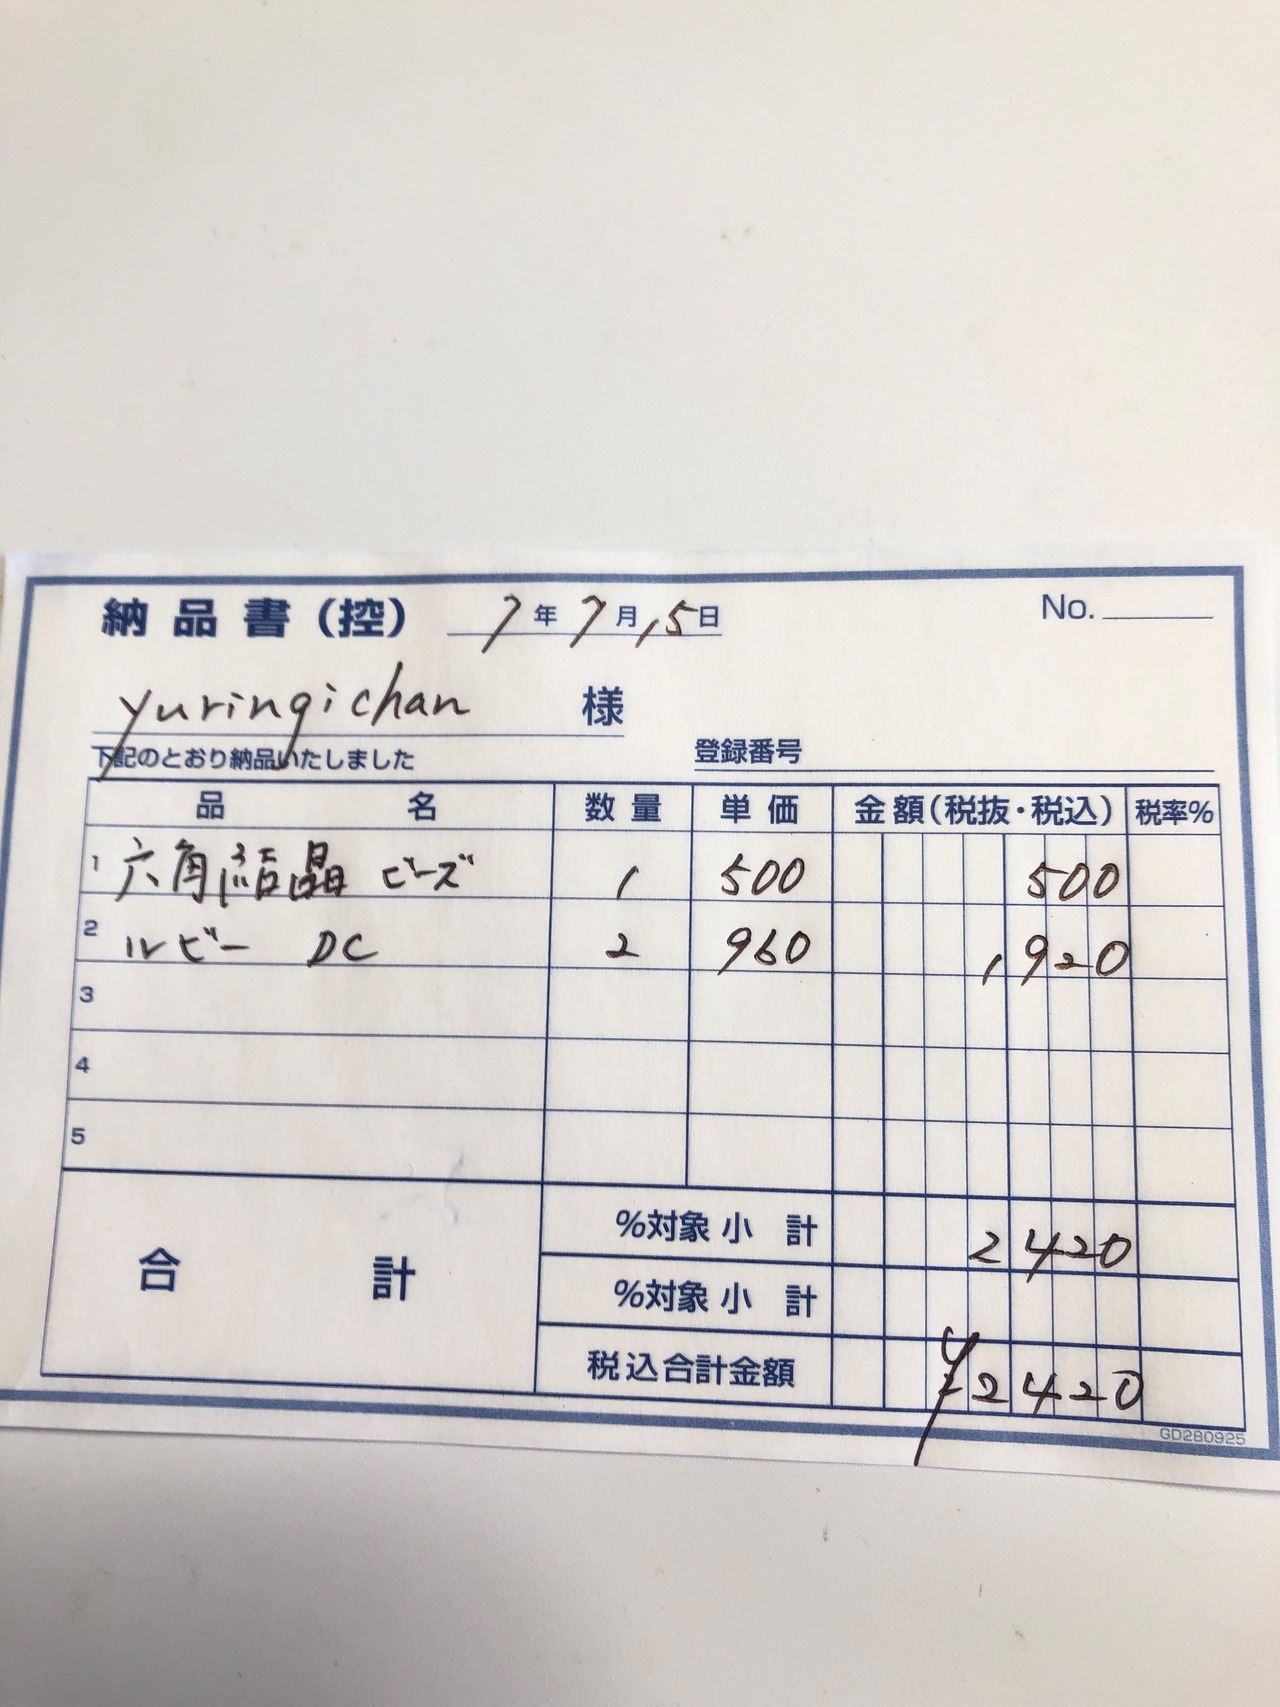 納品書(控) 7年7月15日 No.
yuringichan 様
下記のとおり納品いたしました 登録番号
品名 数量 単価 金額(税抜・税込) 税率%
1 六角結晶 ビーズ 1 500 500
2 ルビー DC 2 960 1920
3
4
5
合計 %対象小計 2420
%対象小計
税込合計金額 ¥2420
GD280925